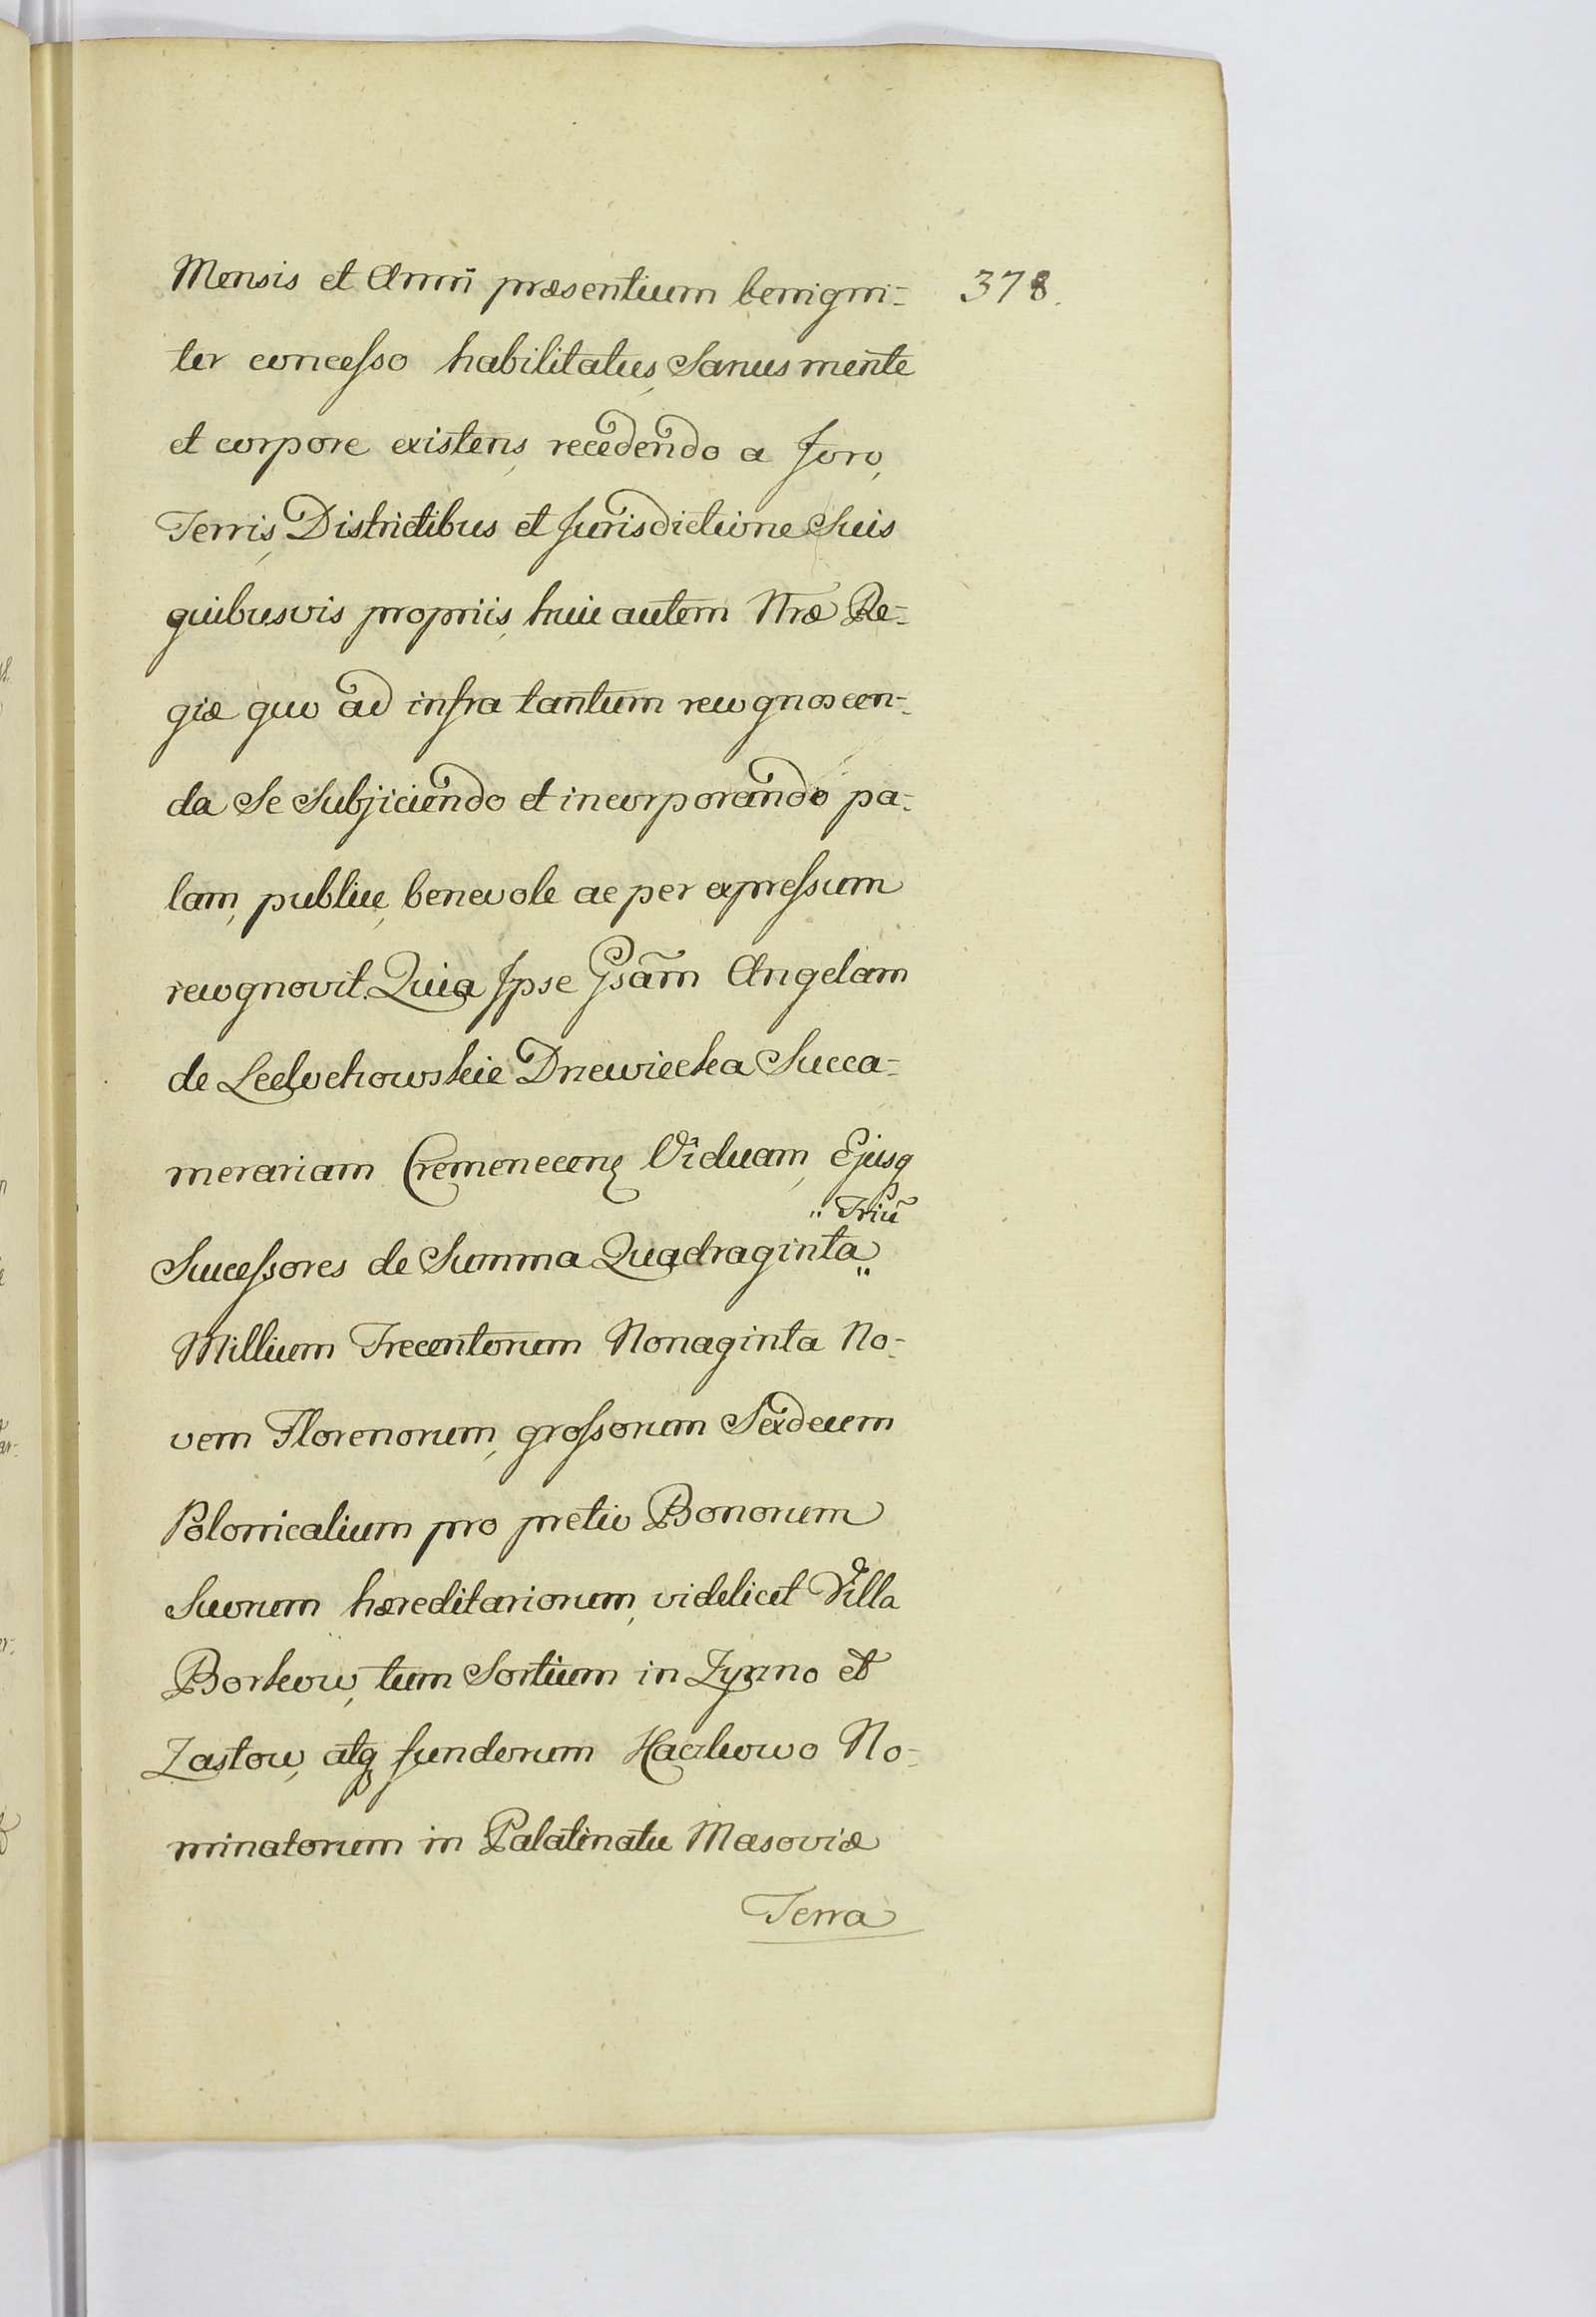 Mensis et Anni præsentium benigni- 378.
ter concesso habilitatus, Sanus mente
et corpore existens, recedendo a Foro,
Terris, Districtibus et Jurisdictione Suis
quibusvis propriis, huic autem Nræ Re-
giæ quo ad infra tantum recognoscen-
da Se Subjiciendo et incorporando pa-
lam, publice, benevole ac per expressum
recognovit. Quia Ipse Gsam Angelam
de Ledochowskie Drzewiecka Succa-
merariam Cremenecens Viduam, Ejusq
" Triū
Successores de Summa Quadraginta "
Millium Trecentorum Nonaginta No-
vem Florenorum, grossorum Sexdecem
Polonicalium pro pretio Bonorum
Suorum hæreditariorum, videlicet Villa
Borkow, tum Sortium in Zyzno et
Zastow, atq fundorum No-
minatorum in Palatinatu Masoviæ
Terra